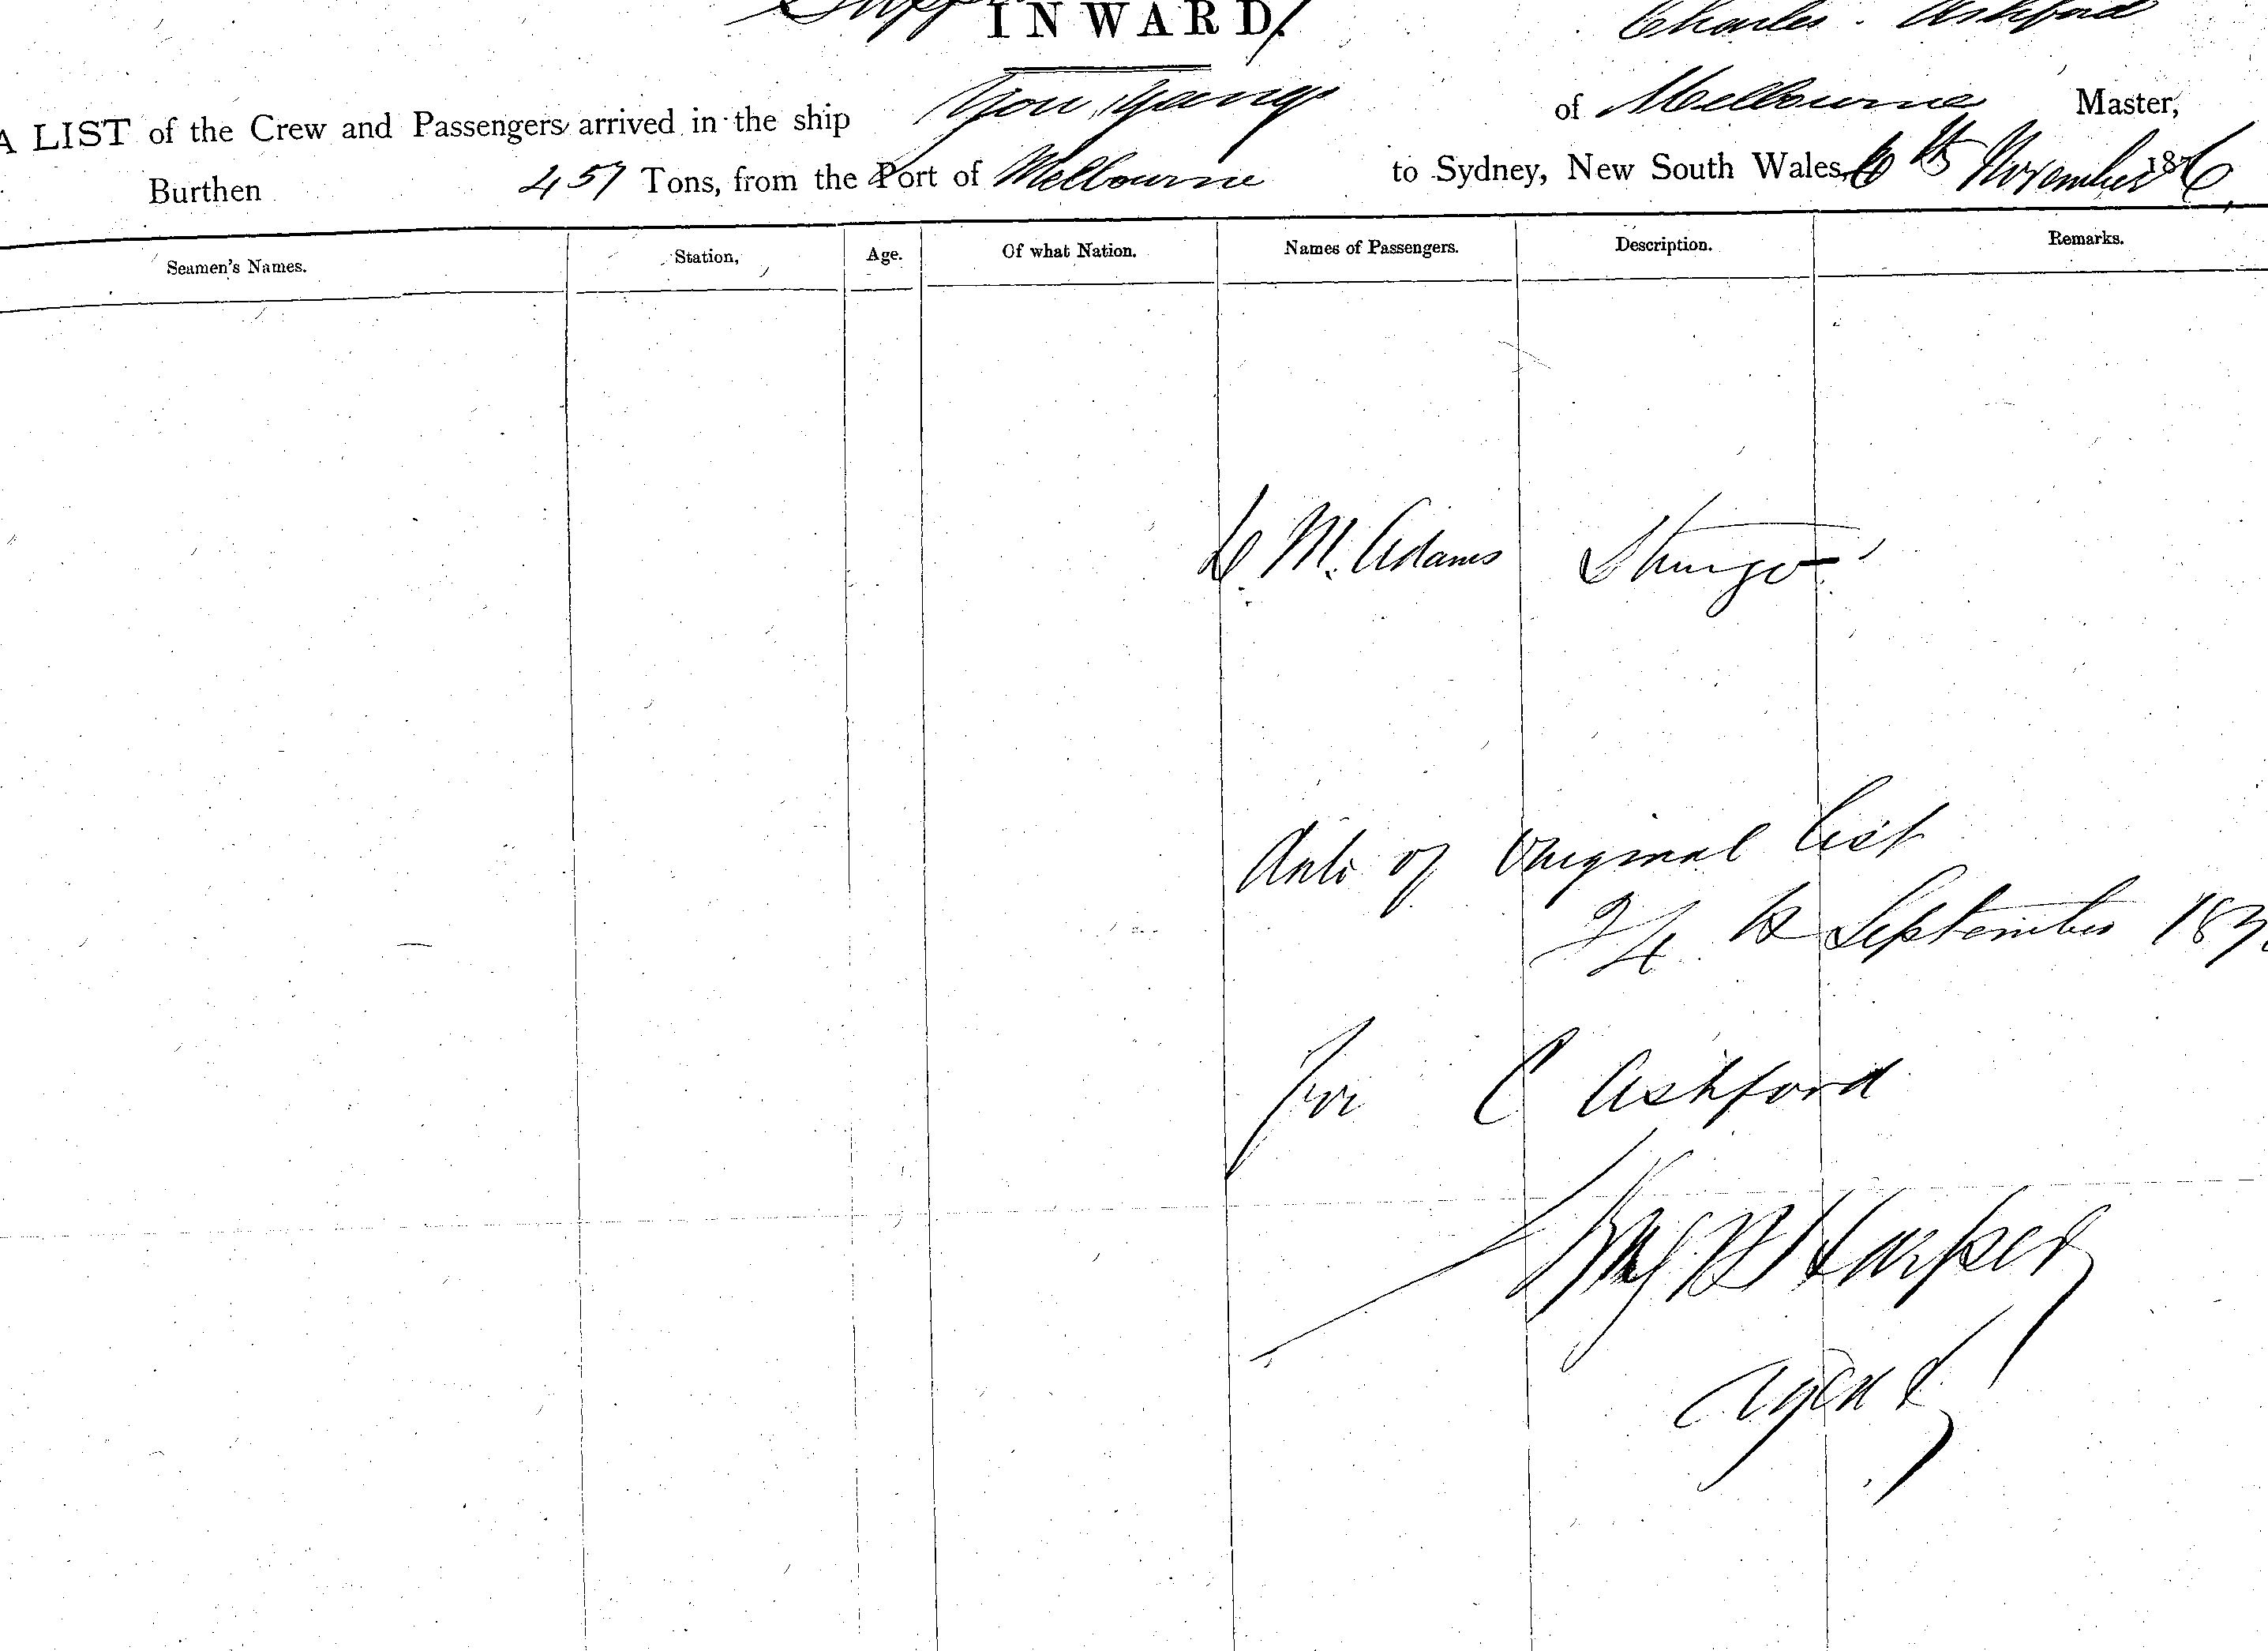 INWARD.
Charles . Ashford
A LIST of the Crew and Passengers arrived in the ship You Yangs of Melbourne Master,
Burthen 457 Tons, from the Port of Melbourne to Sydney, New South Wales, th November 1876
Seamen's Names. Station, Age. Of what Nation. Names of Passengers. Description. Remarks.
M. Adams
of Original List
24 th September 187
for C Ashford
Harper
Agent